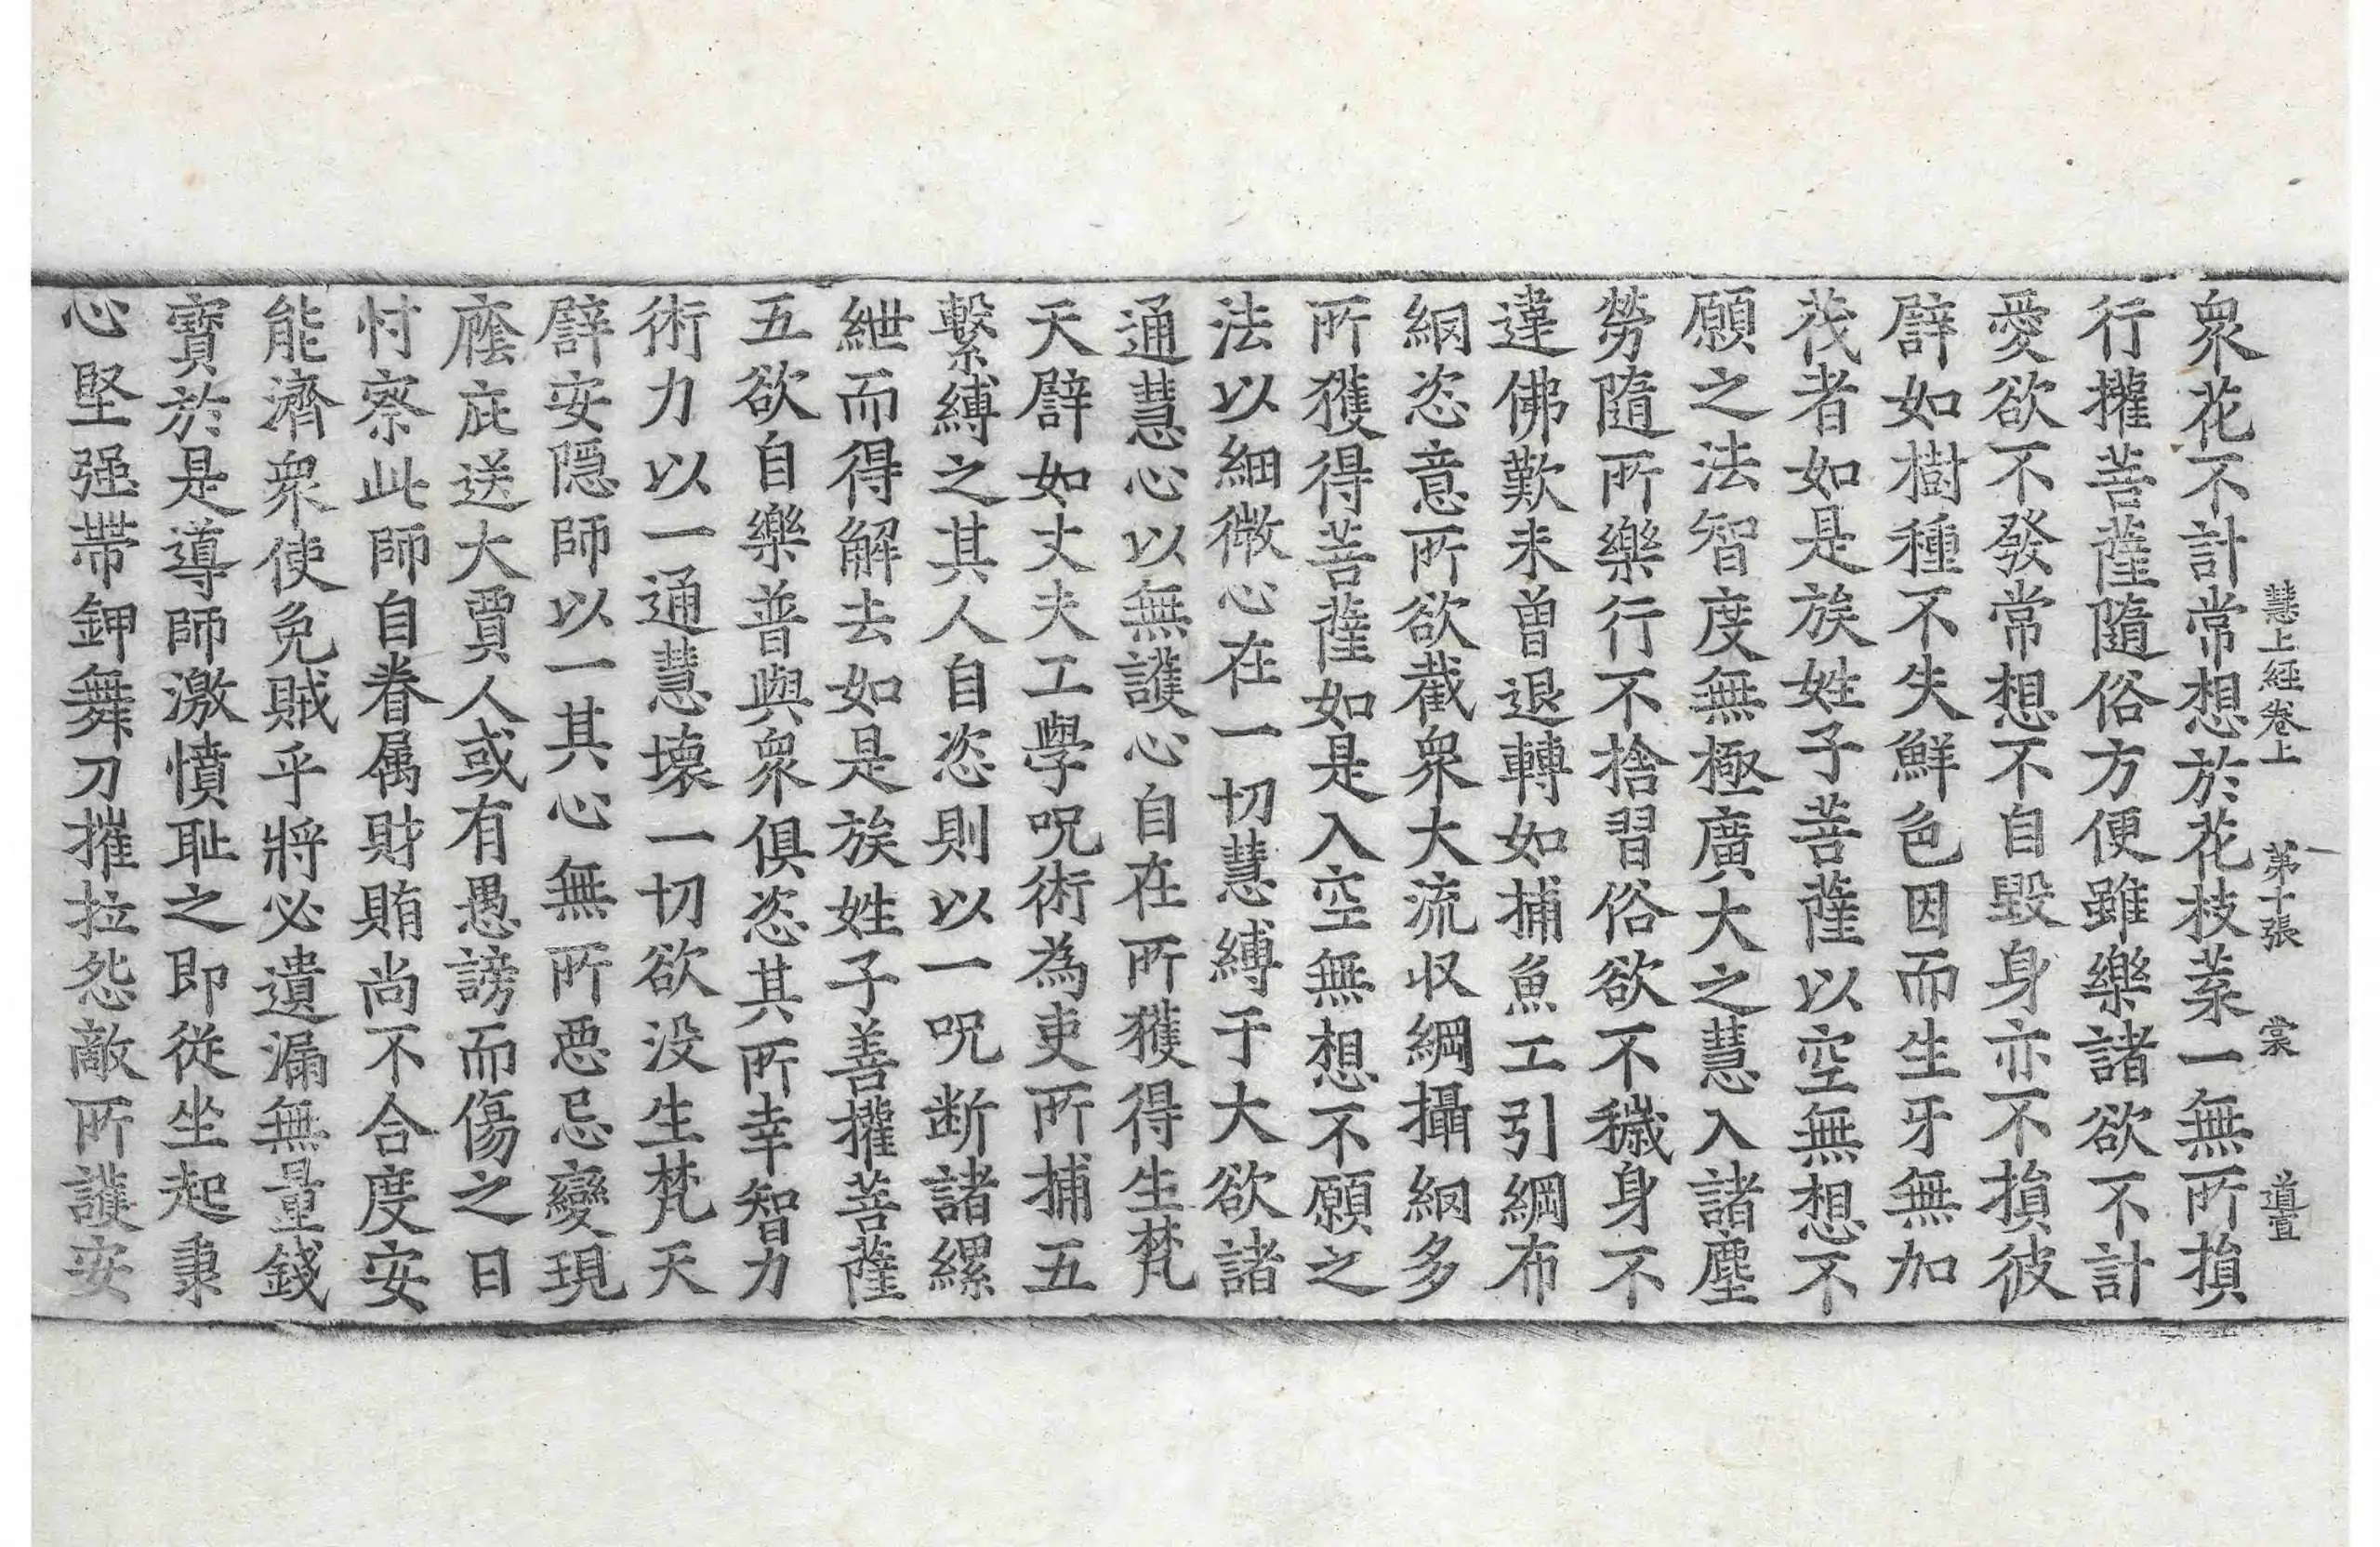 慧上經卷上 第十張 裳 道置
衆花不計常想於花枝葉一無所損
行權菩薩隨俗方便雖樂諸欲不計
愛欲不發常想不自毀身亦不損彼
譬如樹種不失鮮色因而生牙無加
茂者如是族姓子菩薩以空無想不
願之法智度無極廣大之慧入諸塵
勞隨所樂行不捨習俗欲不穢身不
違佛歎未曽退轉如捕魚工引網布
網恣意所欲截衆大流収網攝網多
所獲得菩薩如是入空無想不願之
法以細微心在一切慧縛于大欲諸
通慧心以無護心自在所獲得生梵
天譬如丈夫工學呪術為吏所捕五
繫縛之其人自恣則以一呪断諸縲
紲而得解去如是族姓子善權菩薩
五欲自樂普與衆俱恣其所幸智力
術力以一通慧壞一切欲没生梵天
譬安隱師以一其心無所悪忌變現
廕庇送大賈人或有愚謗而傷之曰
忖察此師自眷属財賄尚不合度安
能濟衆使免賊乎將必遺漏無量錢
寳於是導師激憤耻之即從坐起秉
心堅强帶鉀舞刀摧拉怨敵所護安